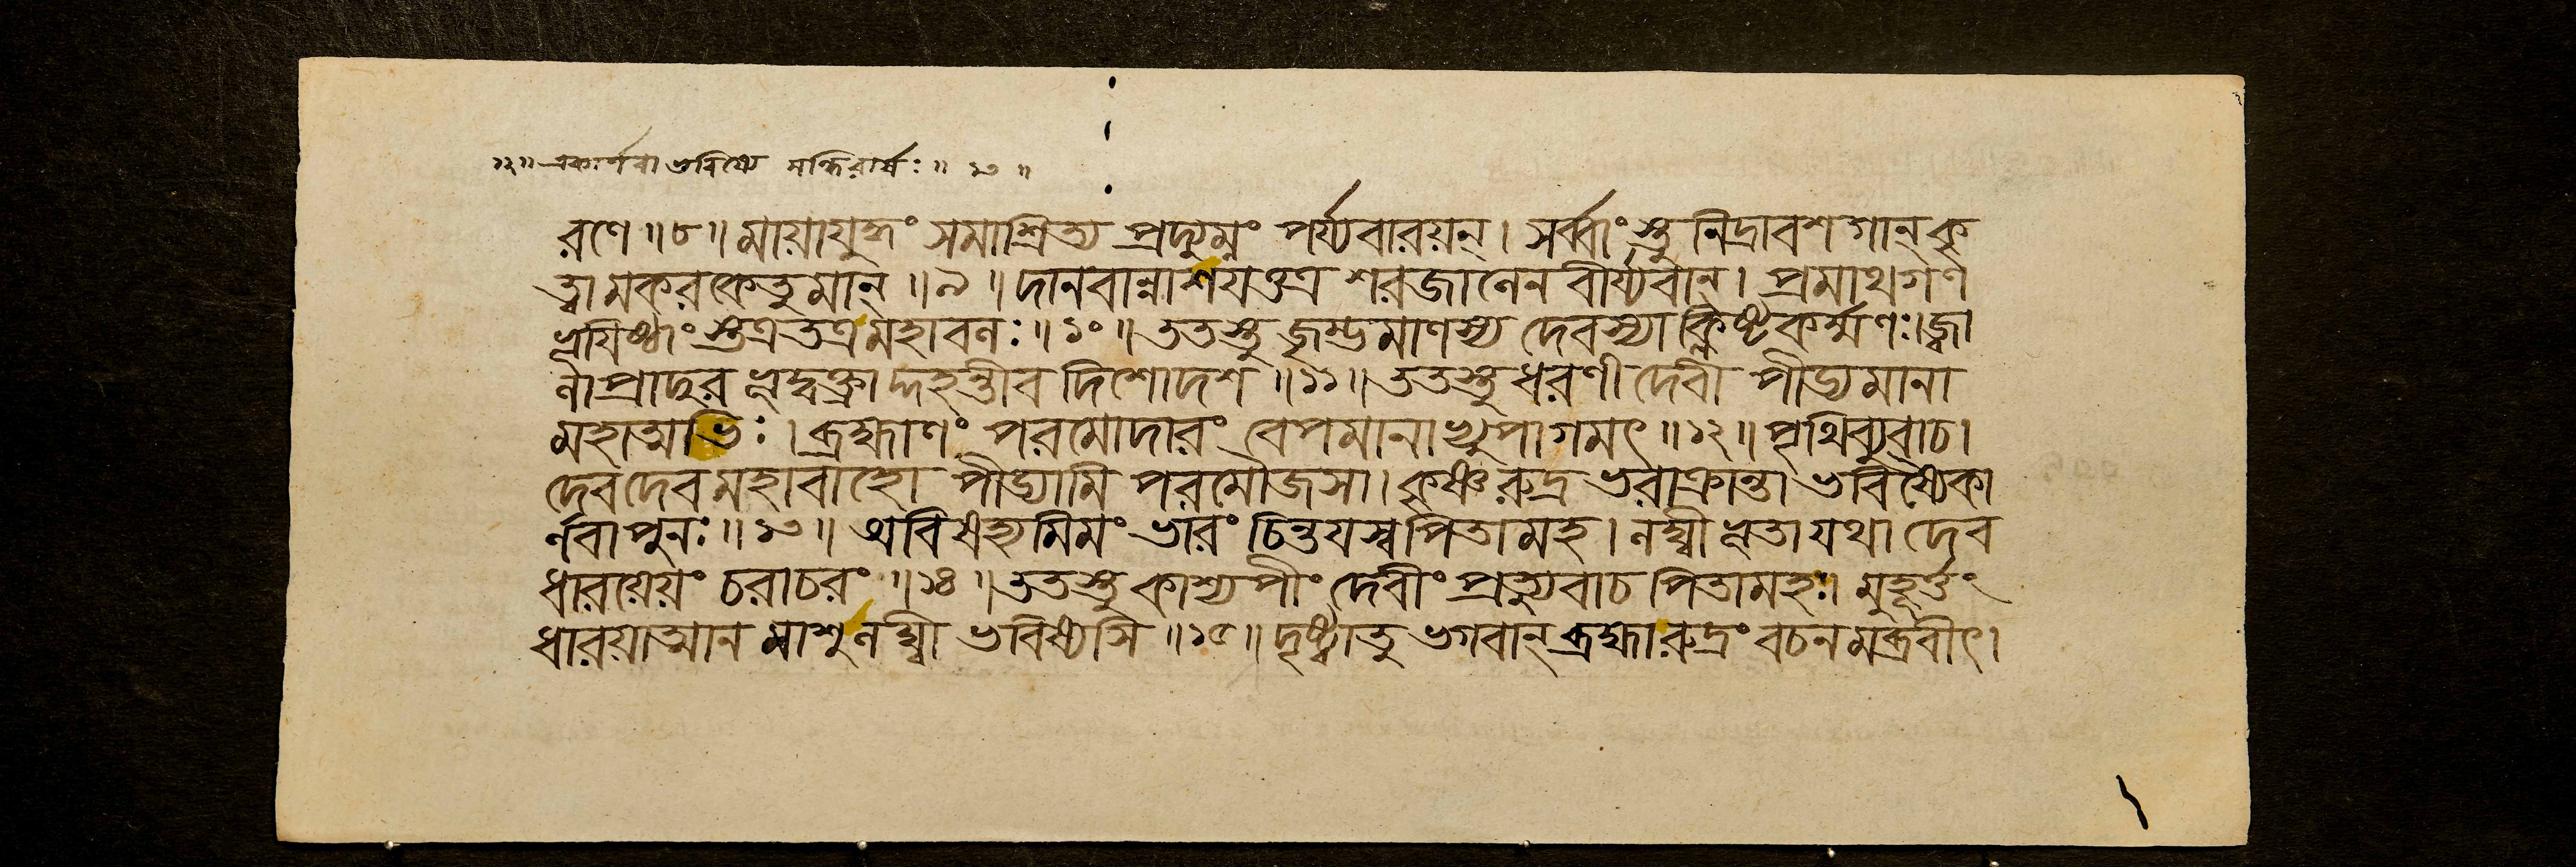 ১২॥ একার্ণবা ভবিষ্যে সন্ধিরার্ষঃ॥ ১৩ ॥
রণে ॥৮॥ মায়াযুদ্ধং সমাশ্রিত্য প্রদ্যুম্নং পর্য্যবারয়ন্। সর্ব্বাংস্তু নিদ্রাবশগান্ কৃ
ত্বা মকরকেতুমান্ ॥৯॥ দানবান্নাশয়ত্তত্র শরজালেন বীর্য্যবান্। প্রমাথগণ
ভূয়িষ্ঠাংস্তত্র তত্র মহাবলঃ ॥১০॥ ততস্তু জৃম্ভমাণস্য দেবস্যাক্লিষ্টকর্ম্মণঃ। জ্বা
লা প্রাদুরভূদ্বক্ত্রাদ্দহন্তীব দিশোদশ ॥১১॥ ততস্তু ধরণী দেবী পীড্যমানা
মহাত্মভিঃ। ব্রহ্মাণং পরমোদারং বেপমানাভ্যুপাগমৎ ॥১২॥ পৃথিব্যুবাচ।
দেবদেব মহাবাহো পীড্যামি পরমৌজসা। কৃষ্ণরুদ্রভরাক্রান্তা ভবিষ্যৈকা
র্ণবা পুনঃ ॥১৩॥ অবিষহ্যমিমং ভারং চিন্তয়স্ব পিতামহ। লঘ্বীভূতা যথা দেব
ধারয়েয়ং চরাচরং ॥১৪॥ ততস্তু কাশ্যপীং দেবীং প্রত্যুবাচ পিতামহঃ। মুহূর্ত্তং
ধারয়াত্মানমাশু লঘ্বী ভবিষ্যসি ॥১৫॥ দৃষ্ট্বা তু ভগবান্ ব্রহ্মা রুদ্রং বচনমব্রবীৎ।